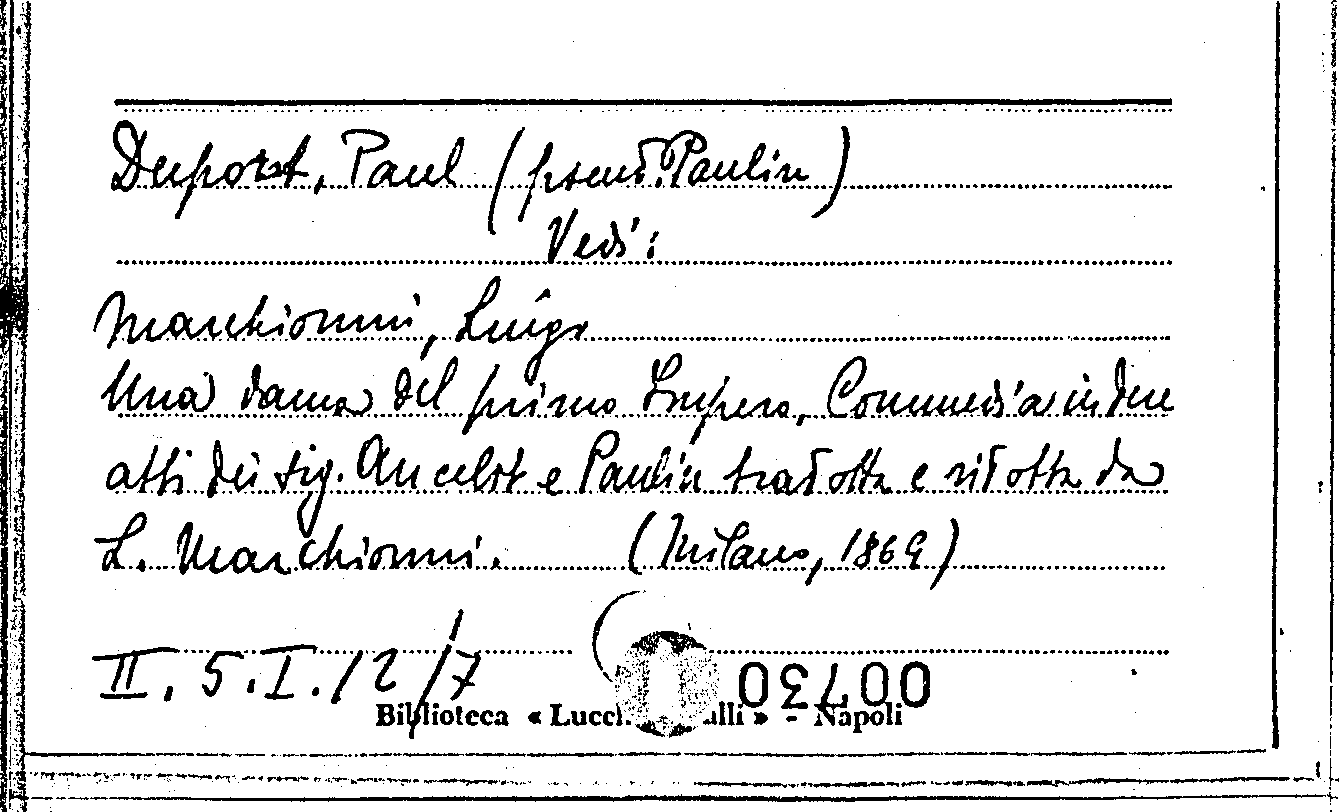 Duport, Paul (pseud. Paulin)
Vedi:
Marchionni, Luigi
Una dama del primo Impero, Commedia in due
atti dei sig. Ancelot e Paulin tradotta e ridotta da
L. Marchionni. (Milano, 1869)
II. 5. I. 12/7
00730
Biblioteca « Lucch alli » - Napoli